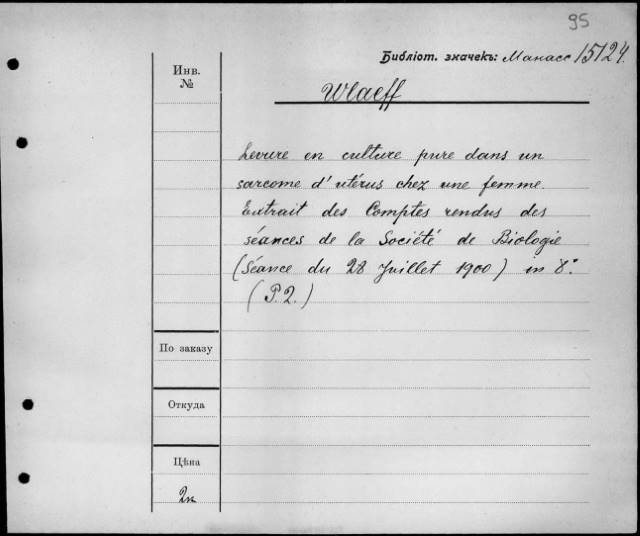 95
Библіот. значекъ: Манасс 15124.
Инв. №
Wlaeff
Levure en culture pure dans un
sarcome d'utérus chez une femme.
Extrait des Comptes rendus des
séances de la Société de Biologie
(Séance du 28 Juillet 1900) in 8°.
(P. 2.)
По заказу
Откуда
Цѣна
2к